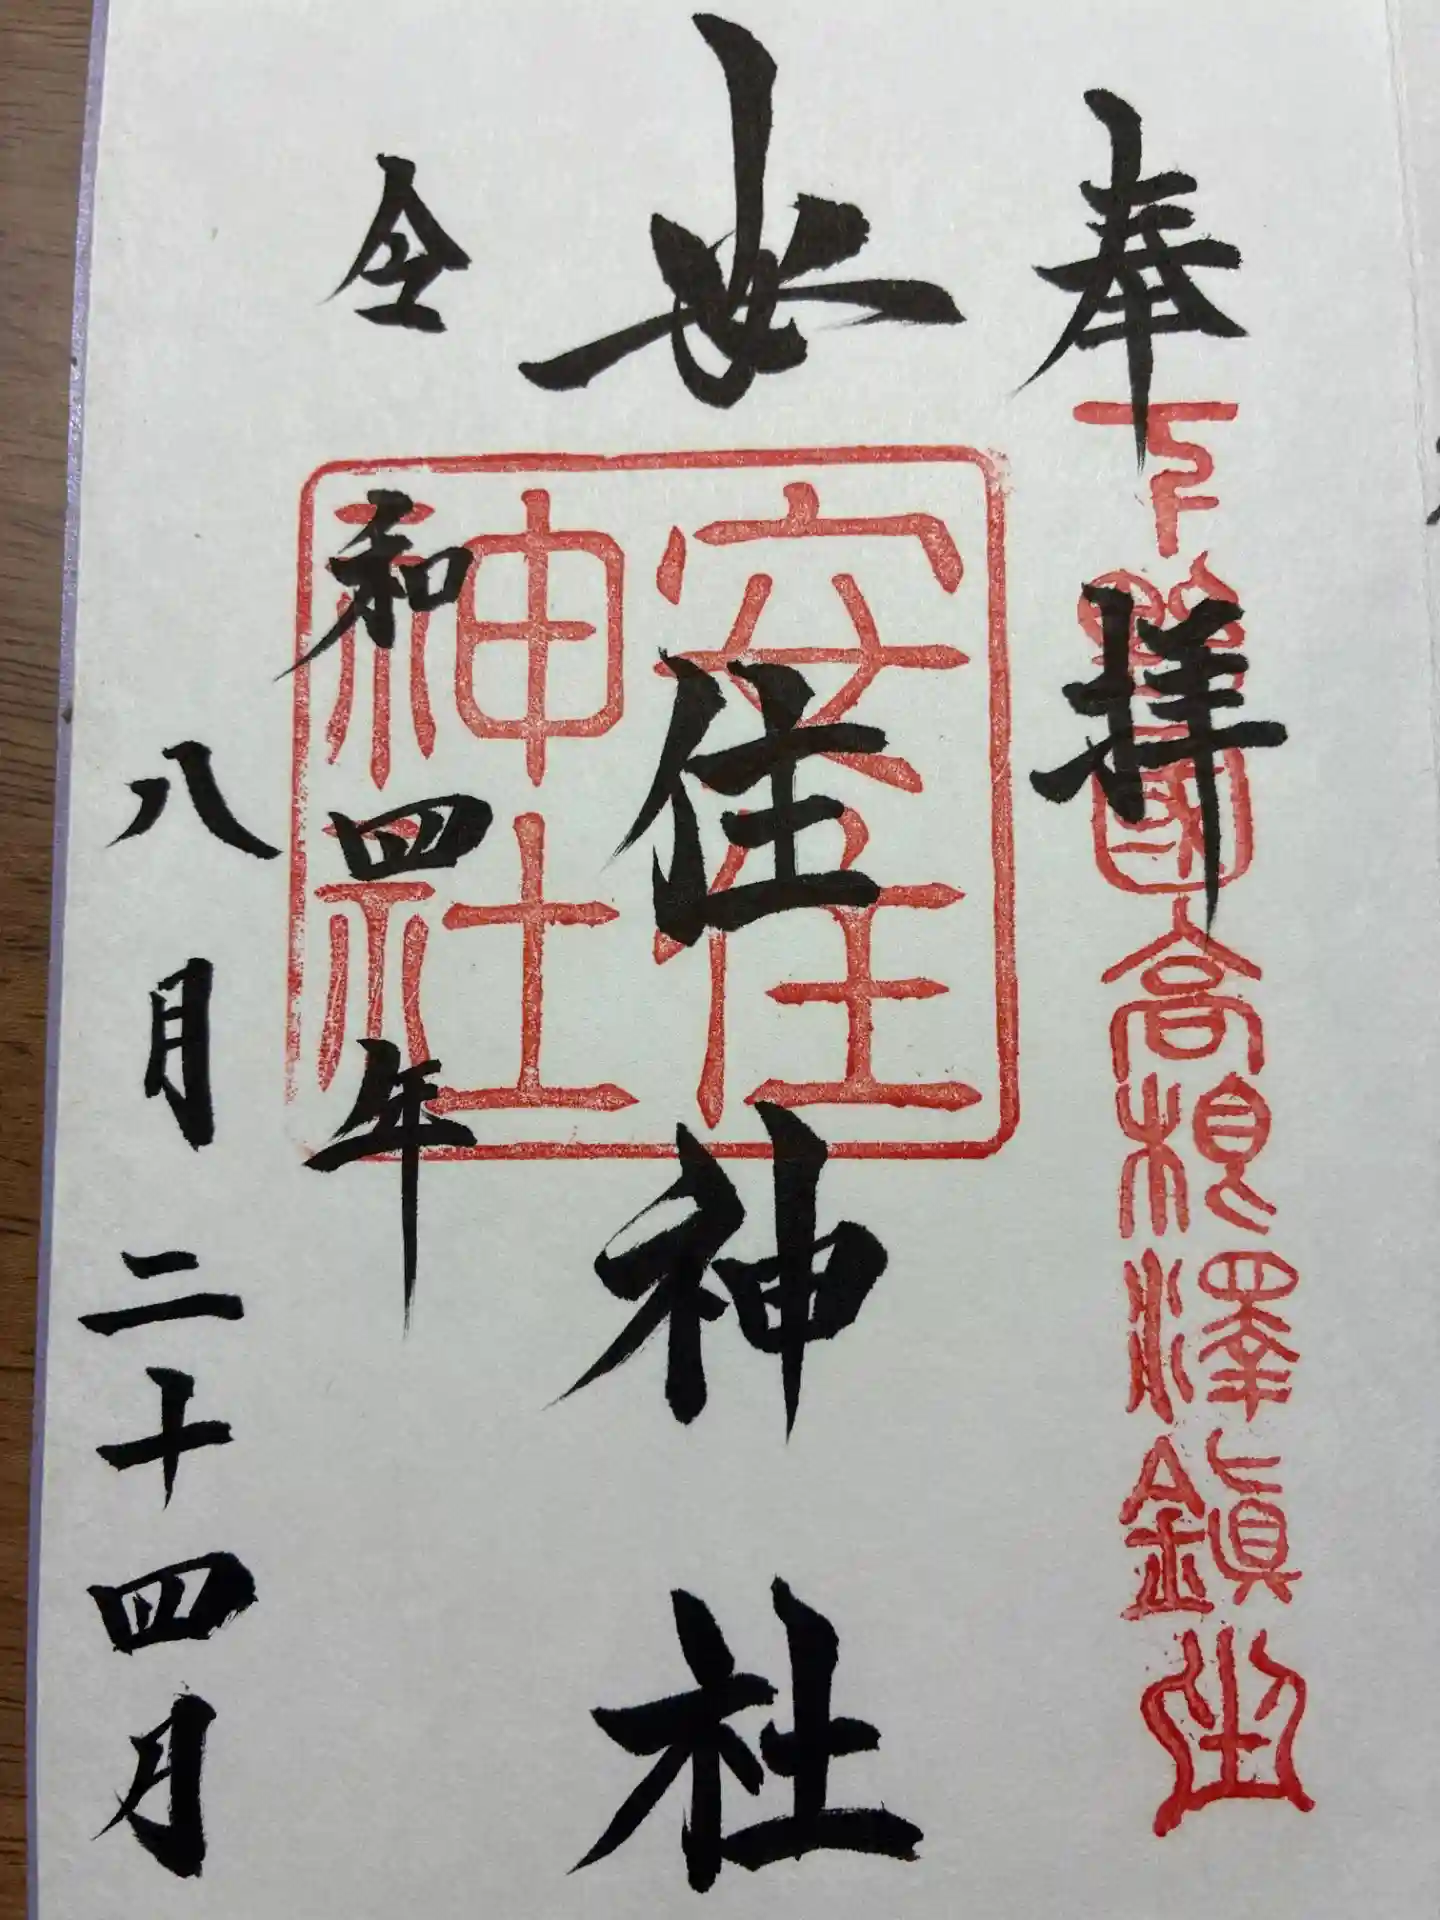 奉拝
下野國高根澤鎮坐
安住神社
安住
神社
令和四年
八月二十四月